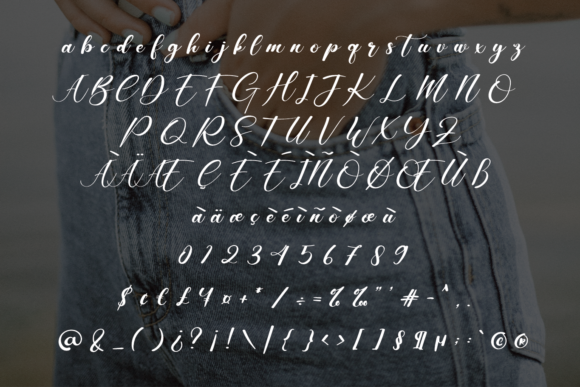 a b c d e f g h i j k l m n o p q r s t u v w x y z
A B C D E F G H I J K L M N O
P Q R S T U V W X Y Z
À Ä Æ Ç È É Ì Ñ Ò Ø Œ Ù B
à ä æ ç è é ì ñ ò ø œ ù
0 1 2 3 4 5 6 7 8 9
$ ¢ £ ¥ ¤ + * / ÷ = % ‰ " ' # - ^ , .
@ & _ ( ) ¿ ? ¡ ! \ | { } < > [ ] § ¶ µ ; : ` © ®